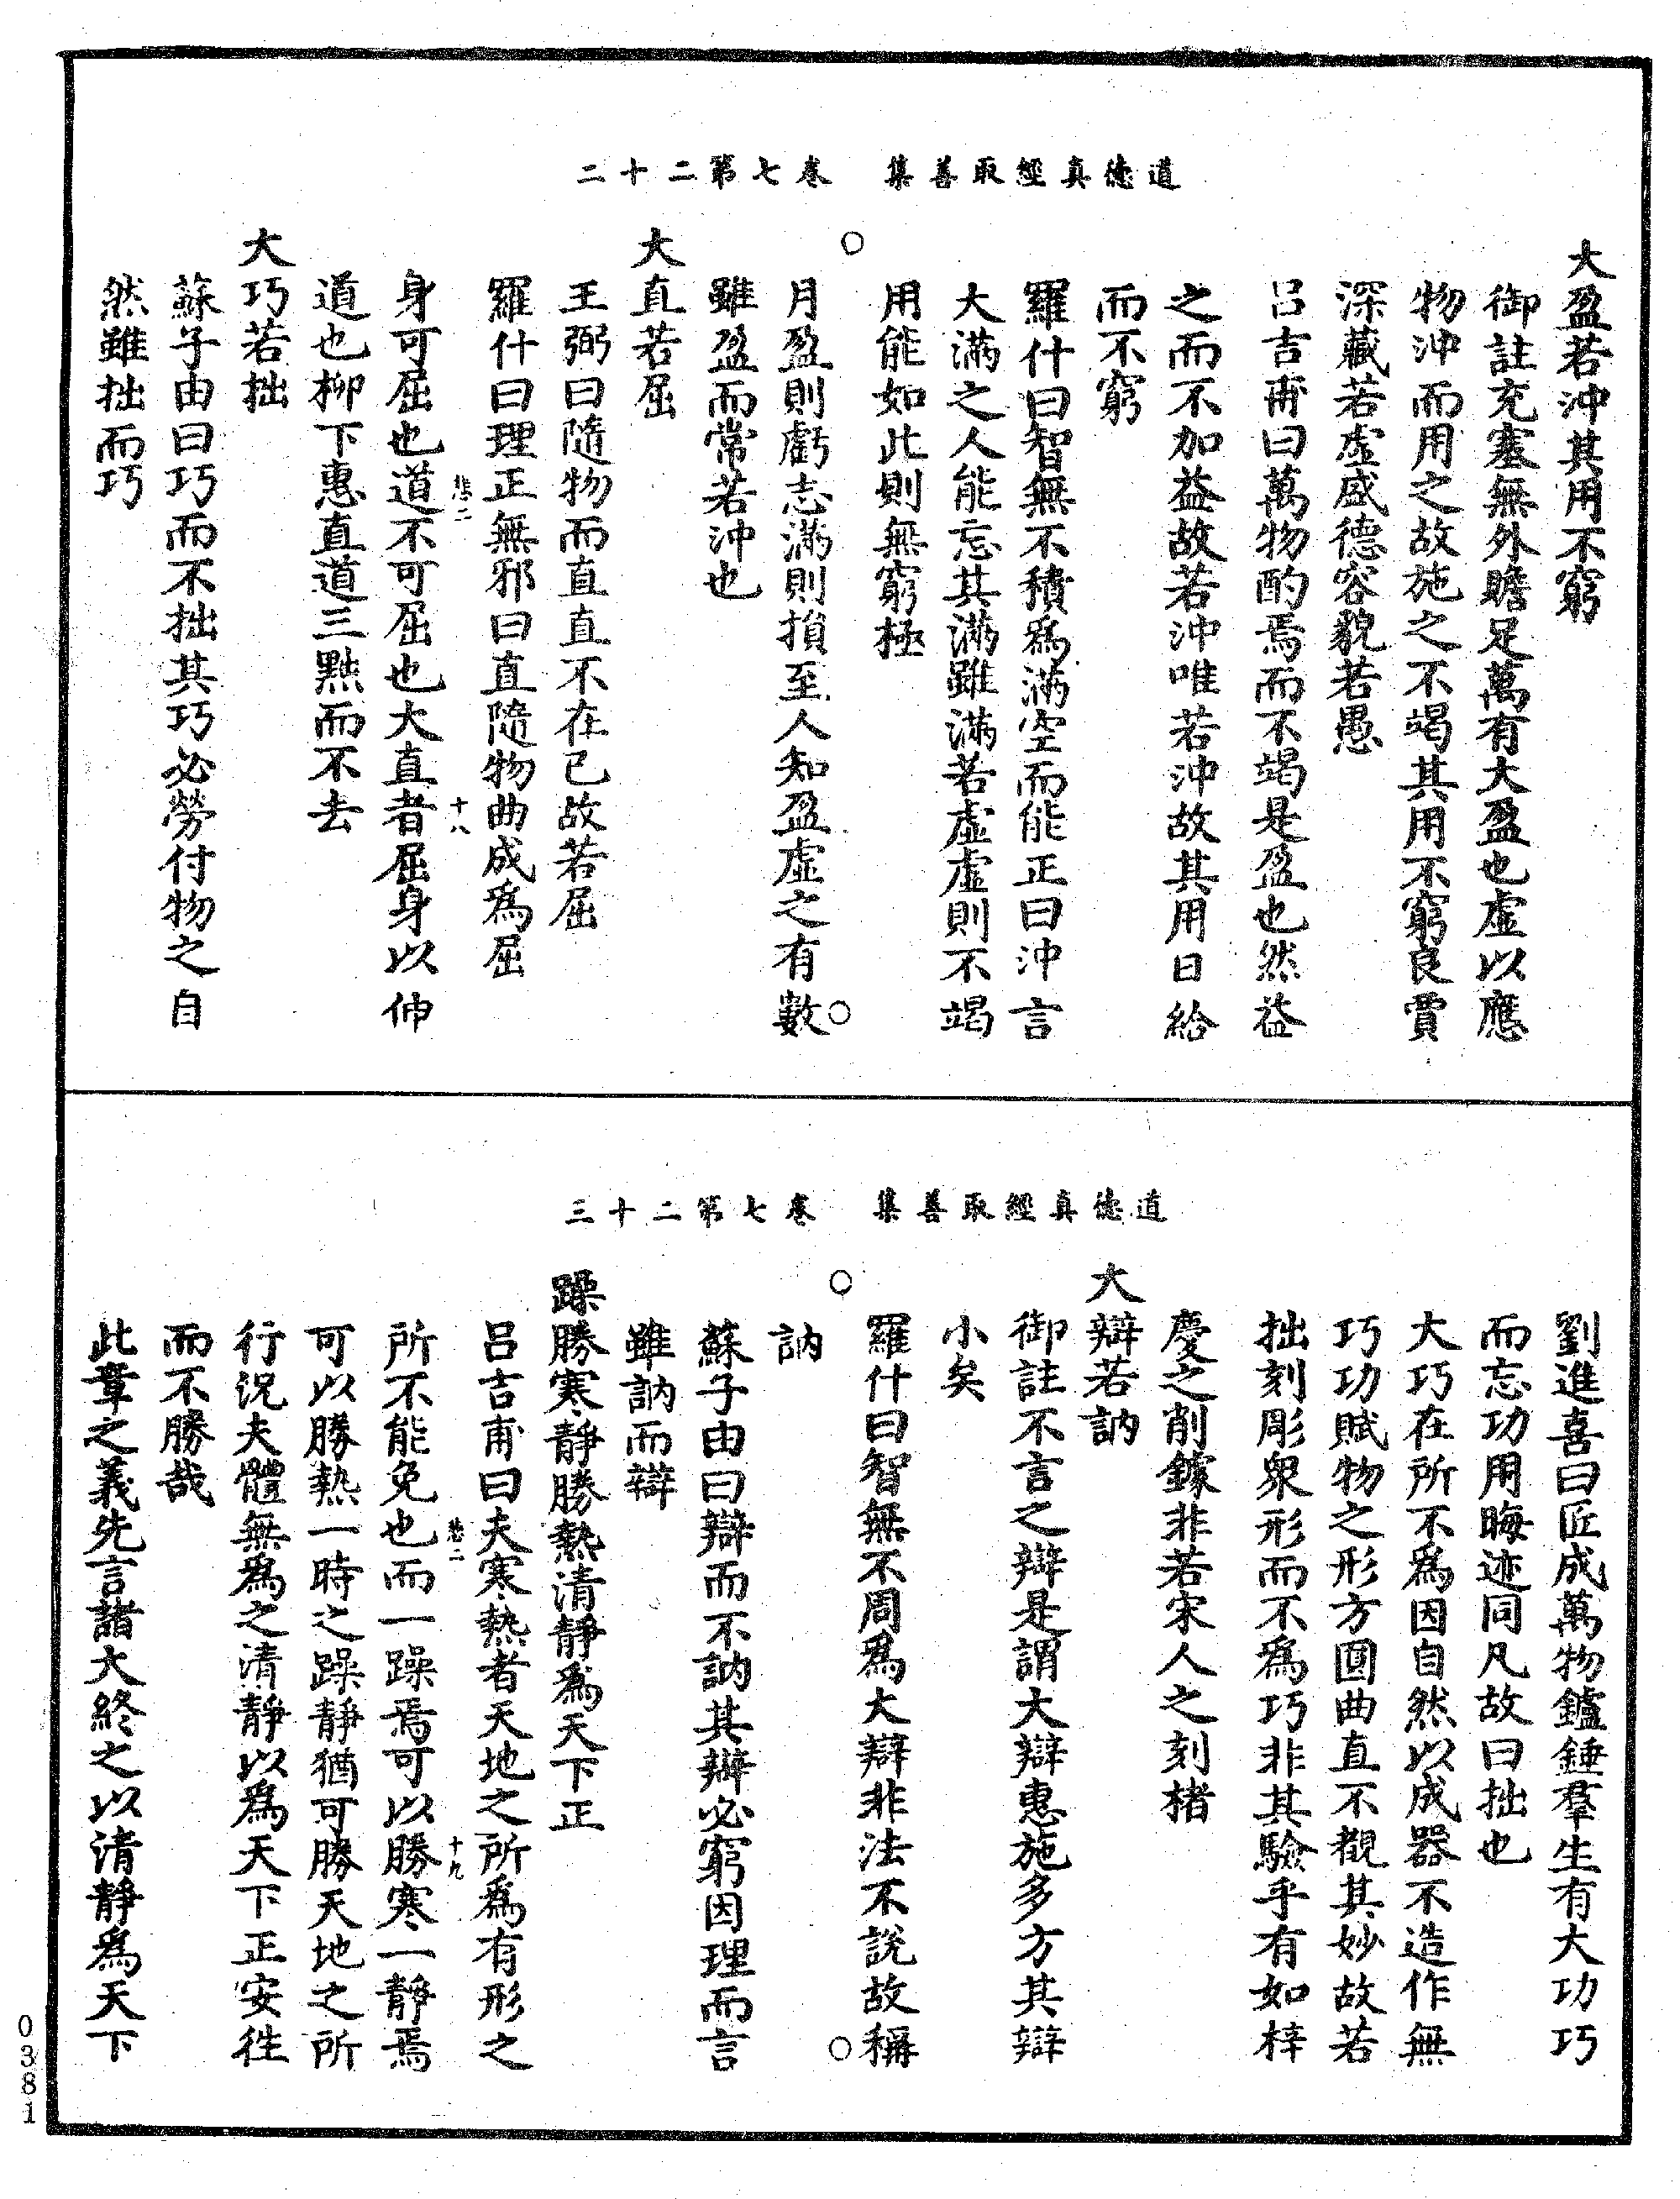 道德真經取善集　卷七第二十二
大盈若沖其用不窮
御註充塞無外贍足萬有大盈也虛以應
物沖而用之故施之不竭其用不窮良賈
深藏若虛盛德容貌若愚
呂吉甫曰萬物酌焉而不竭是盈也然益
之而不加益故若沖唯若沖故其用日給
而不窮
羅什曰智無不積爲滿空而能正曰沖言
大滿之人能忘其滿雖滿若虛虛則不竭
用能如此則無窮極
月盈則虧志滿則損至人知盈虛之有數
雖盈而常若沖也
大直若屈
王弼曰隨物而直直不在已故若屈
羅什曰理正無邪曰直隨物曲成爲屈
十八
身可屈也道不可屈也大直者屈身以伸
道也柳下惠直道三黜而不去
大巧若拙
蘇子由曰巧而不拙其巧必勞付物之自
然雖拙而巧
道德真經取善集　卷七第二十三
劉進喜曰匠成萬物鑪錘羣生有大功巧
而忘功用晦迹同凡故曰拙也
大巧在所不爲因自然以成器不造作無
巧功賦物之形方圓曲直不覩其妙故若
拙刻彫衆形而不爲巧非其驗乎有如梓
慶之削鐻非若宋人之刻楮
大辯若訥
御註不言之辯是謂大辯惠施多方其辯
小矣
羅什曰智無不周爲大辯非法不說故稱
訥
蘇子由曰辯而不訥其辯必窮因理而言
雖訥而辯
躁勝寒靜勝熱清靜爲天下正
呂吉甫曰夫寒熱者天地之所爲有形之
十九
所不能免也而一躁焉可以勝寒一靜焉
可以勝熱一時之躁靜猶可勝天地之所
行況夫體無爲之清靜以爲天下正安往
而不勝哉
此章之義先言諸大終之以清靜爲天下
0381